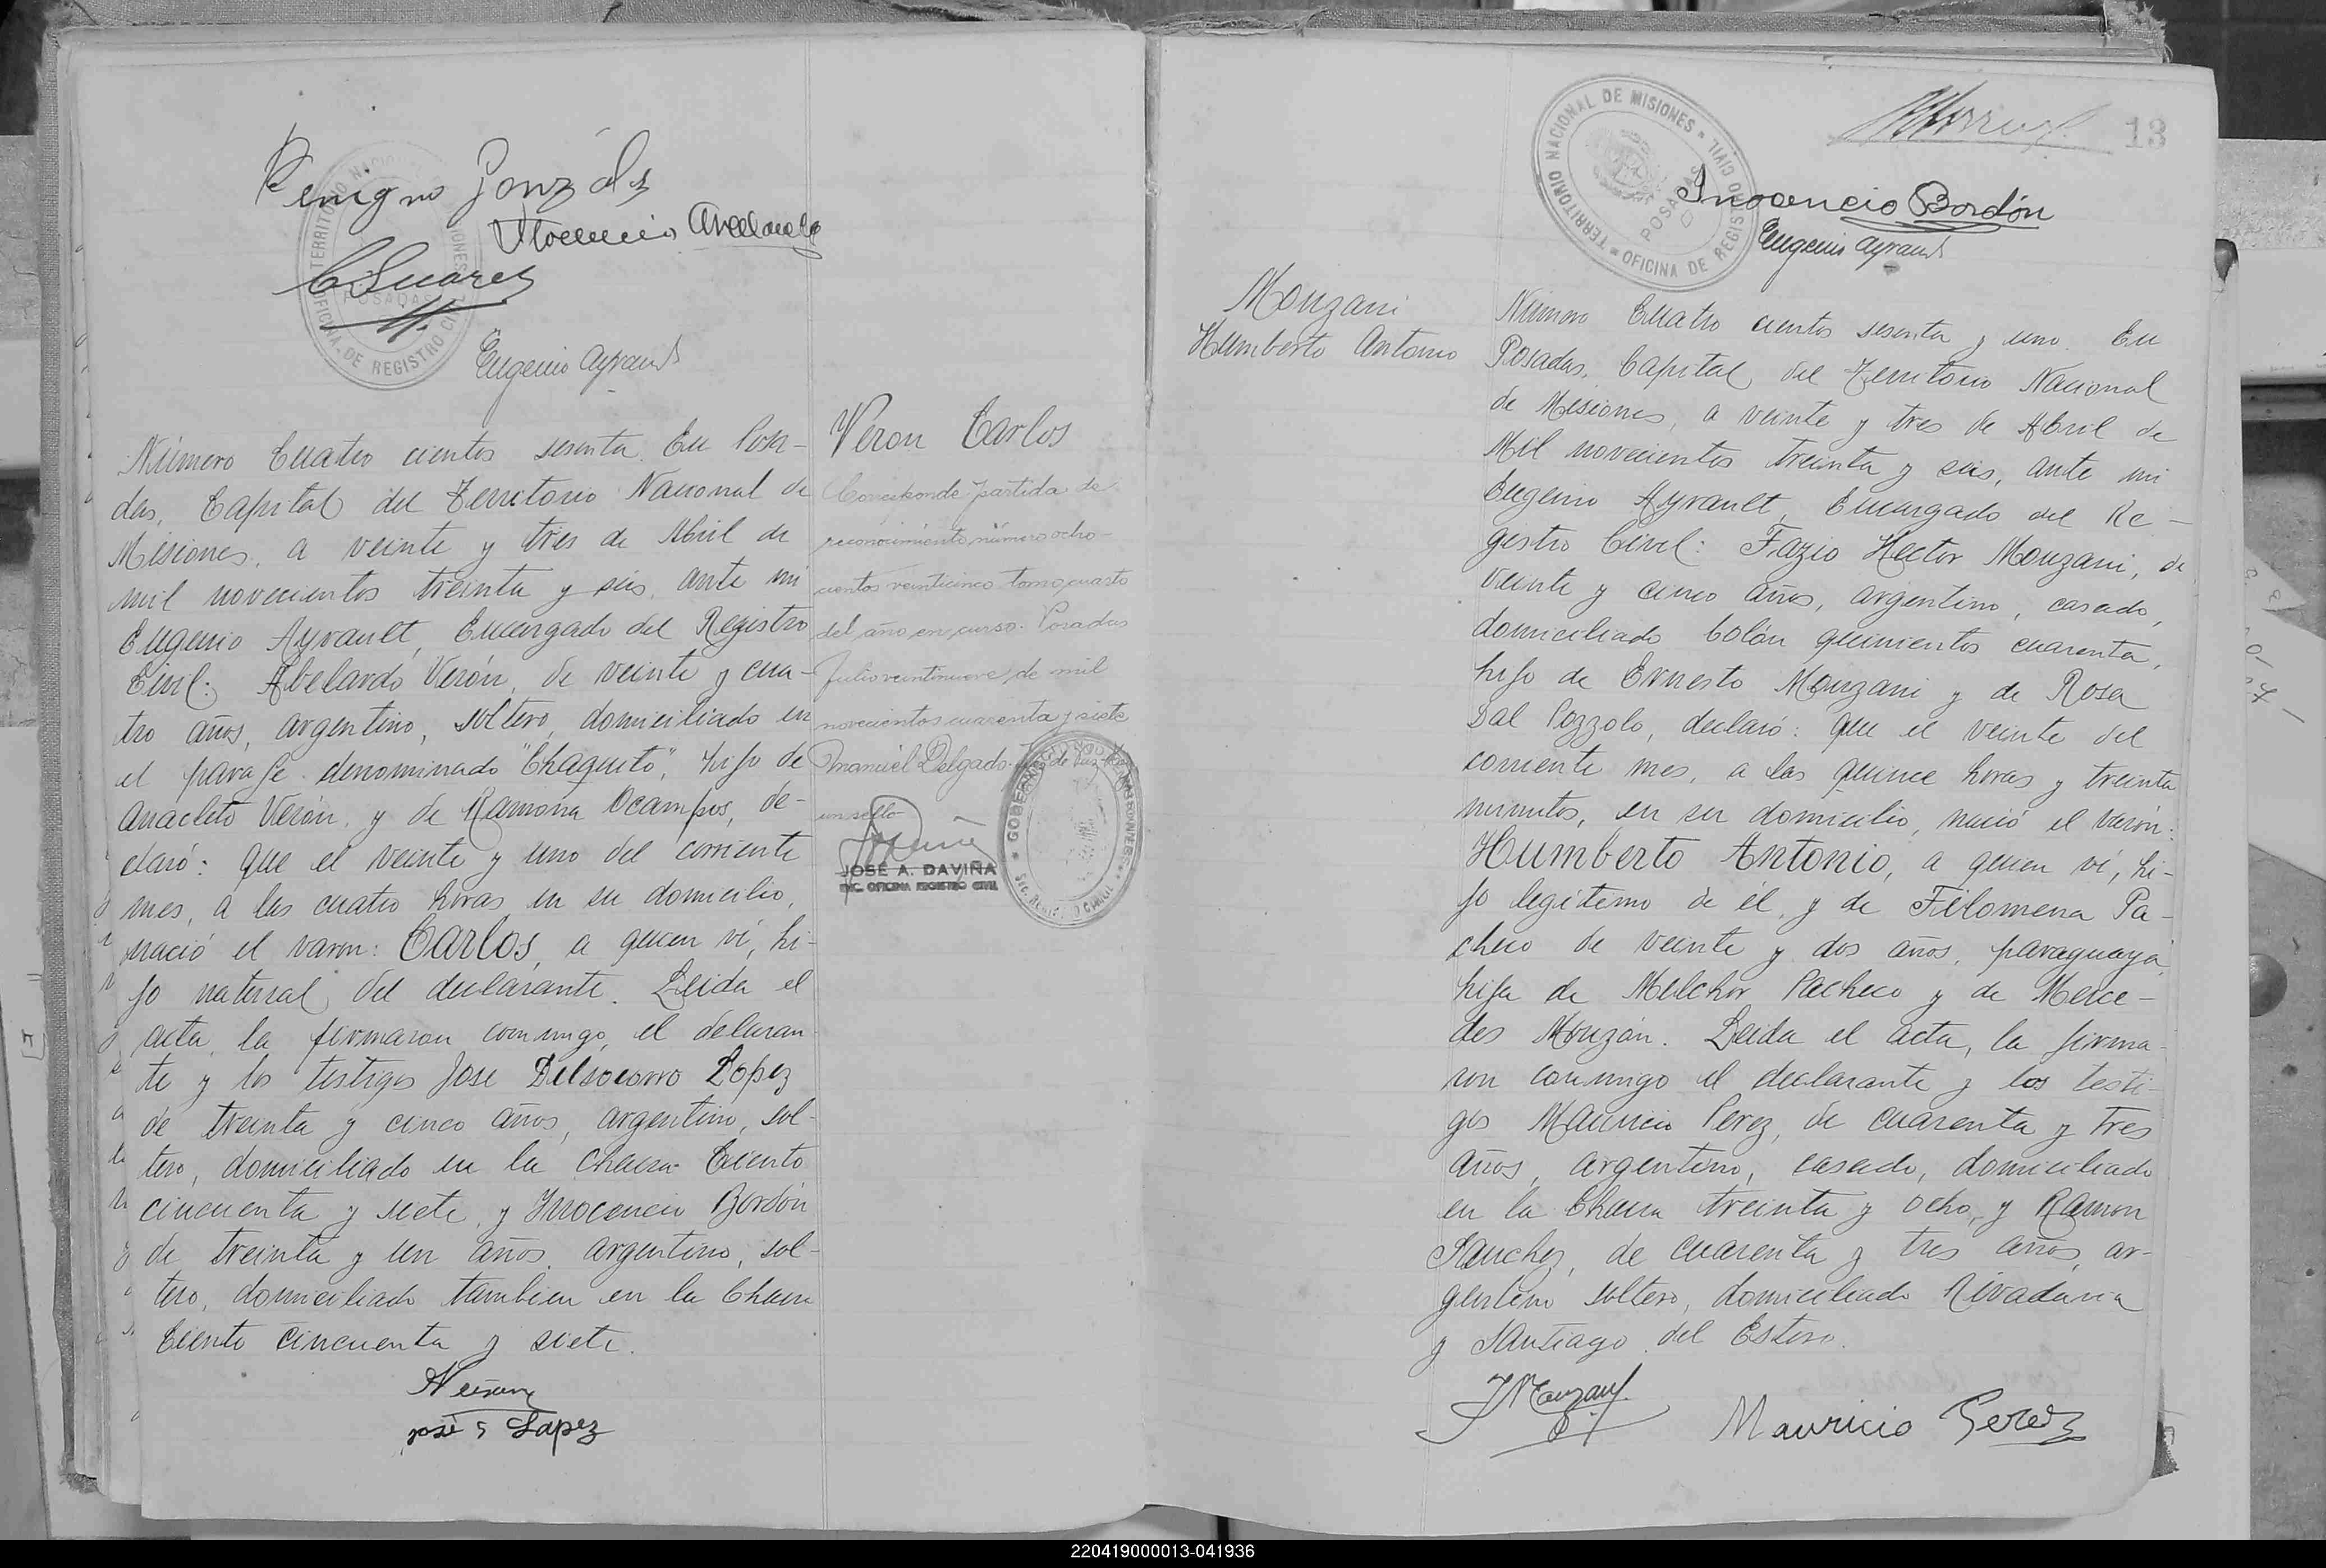 Benigno Gonzáles
C Suarez
Eugenio Ayrault
TERRITORIO NACIONAL DE MISIONES
OFICINA DE REGISTRO CIVIL
POSADAS
Número Cuatro cientos sesenta. En Posa-
das, Capital del Territorio Nacional de
Misiones, a veinte y tres de Abril de
mil novecientos treinta y seis, ante mi
Eugenio Ayrault, Encargado del Registro
Civil: Abelardo Verón, de veinte y cua-
tro años, argentino, soltero, domiciliado en
el paraje denominado "Chaquito", hijo de
Anacleto Verón, y de Ramona Ocampos, de-
claró: que el veinte y uno del corriente
mes, a las cuatro horas en su domicilio,
nació el varon: Carlos, a quien ví, hi-
jo natural del declarante. Leida el
acta, la firmaron conmigo, el delaran-
te y los testigos Jose Delsocorro Lopez
de treinta y cinco años, argentino, sol-
tero, domiciliado en la chacra Ciento
cincuenta y siete, y Inocencio Bordón
de treinta y un años, argentino, sol-
tero, domiciliado tambien en la Chacra
Ciento cincuenta y siete.
José S Lopez
Veron Carlos
Corresponde partida de
reconocimiento número ocho-
cientos veinticinco tomo cuarto
del año en curso. Posadas
Julio veintinueve de mil
novecientos cuarenta y siete
Manuel Delgado. J. de Paz. Hay
un sello
JOSÉ A. DAVIÑA
ENC. OFICINA REGISTRO CIVIL
13
TERRITORIO NACIONAL DE MISIONES
OFICINA DE REGISTRO CIVIL
POSADAS
Inocencio Bordón
Eugenio Ayrault
Monzani
Humberto Antonio
Número Cuatro cientos sesenta y uno. En
Posadas, Capital del Territorio Nacional
de Misiones, a veinte y tres de Abril de
Mil novecientos treinta y seis, ante mi
Eugenio Ayrault, Encargado del Re-
gistro Civil: Fazio Hector Monzani, de
veinte y cinco años, argentino, casado,
domiciliado Colón quinientos cuarenta,
hijo de Ernesto Monzani y de Rosa
Dal Pozzolo, declaró: que el veinte del
corriente mes, a las quince horas y treinta
minutos, en su domicilio, nació el varón:
Humberto Antonio, a quien ví, hi-
jo legítimo de él, y de Filomena Pa-
checo de veinte y dos años, paraguaya,
hija de Melchor Pacheco y de Merce-
des Monzón. Leida el acta, la firma-
ron conmigo el declarante y los testi-
gos Mauricio Perez, de cuarenta y tres
años, argentino, casado, domiciliado
en la Chacra treinta y ocho, y Ramon
Sanchez, de cuarenta y tres años, ar-
gentino soltero, domiciliado Rivadavia
y Santiago del Estero.
Mauricio Perez
220419000013-041936